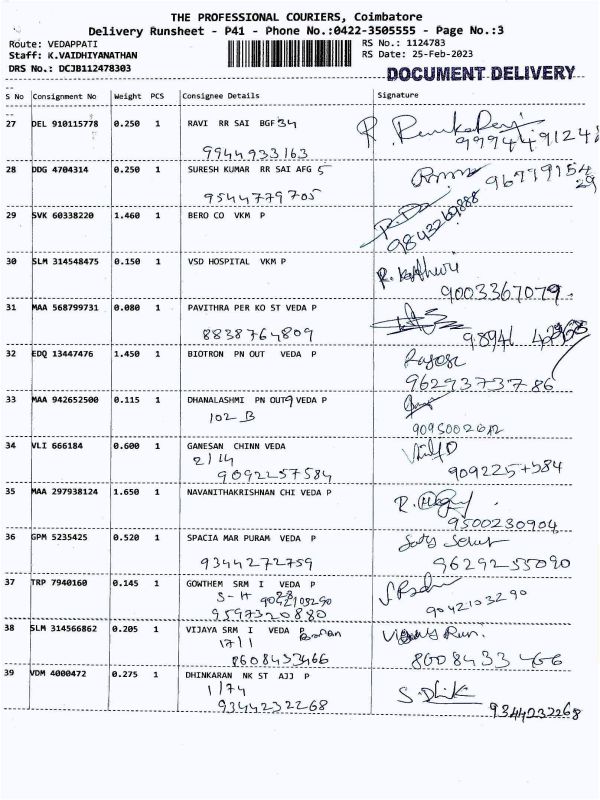 THE PROFESSIONAL COURIERS, Coimbatore
Delivery Runsheet - P41 - Phone No.:0422-3505555 - Page No.:3
Route: VEDAPPATI
RS No.: 1124783
Staff: K.VAIDHIYANATHAN
RS Date: 25-Feb-2023
DRS No.: DCJB112478303
DOCUMENT DELIVERY
S No Consignment No Weight PCS Consignee Details Signature
27 DEL 910115778 0.250 1 RAVI RR SAI BGF 34
9944933163
28 DDG 4704314 0.250 1 SURESH KUMAR RR SAI AFG 5
9544779705
29 SVK 60338220 1.460 1 BERO CO VKM P
30 SLM 314548475 0.150 1 VSD HOSPITAL VKM P
9003367079
31 MAA 568799731 0.080 1 PAVITHRA PER KO ST VEDA P
8838764809
32 EDQ 13447476 1.450 1 BIOTRON PN OUT VEDA P
9629373786
33 MAA 942652500 0.115 1 DHANALASHMI PN OUT9 VEDA P
102 B
34 VLI 666184 0.600 1 GANESAN CHINN VEDA
2/14
9092257584 9092257584
35 MAA 297938124 1.650 1 NAVANITHAKRISHNAN CHI VEDA P
9500230904
36 GPM 5235425 0.520 1 SPACIA MAR PURAM VEDA P
9344272759 9629255090
37 TRP 7940160 0.145 1 GOWTHEM SRM I VEDA P
S-H 9042103290
9597320880 9042103290
38 SLM 314566862 0.205 1 VIJAYA SRM I VEDA P
17/1
8608433466 8608433466
39 VDM 4000472 0.275 1 DHINKARAN NK ST AJJ P
1/74
9344232268 9344232268